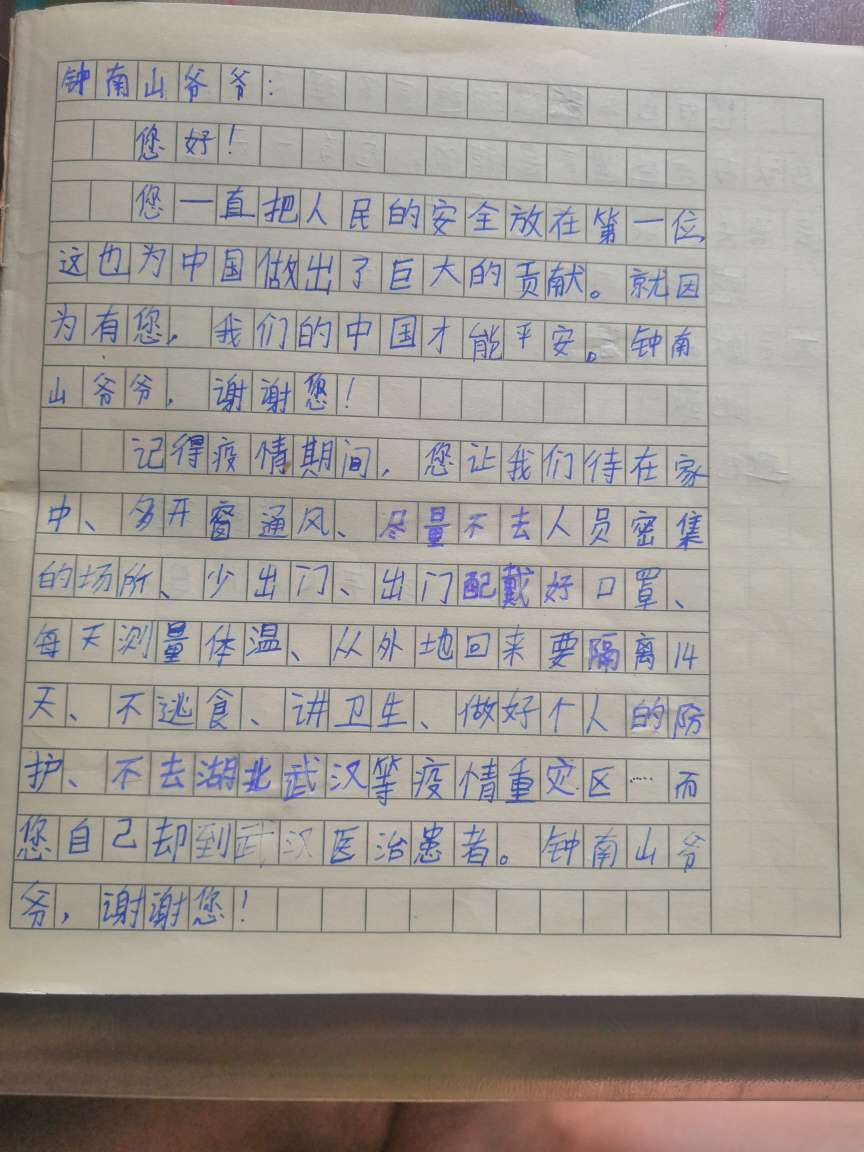 钟南山爷爷：
您好！
您一直把人民的安全放在第一位，
这也为中国做出了巨大的贡献。就因
为有您，我们的中国才能平安。钟南
山爷爷，谢谢您！
记得疫情期间，您让我们待在家
中、多开窗通风、尽量不去人员密集
的场所、少出门、出门配戴好口罩、
每天测量体温、从外地回来要隔离14
天、不逃食、讲卫生、做好个人的防
护、不去湖北武汉等疫情重灾区…而
您自己却到武汉医治患者。钟南山爷
爷，谢谢您！